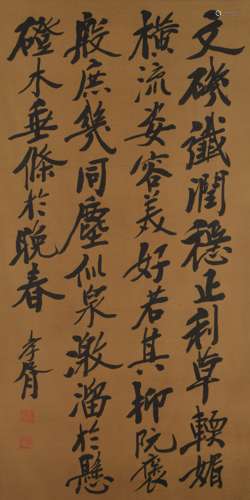 文磯讖潤穩止利草輭媚
横流姿容美好若其柳阮褒
般庶幾同塵似泉激溜於懸
磴木垂條於晚春
孝胥